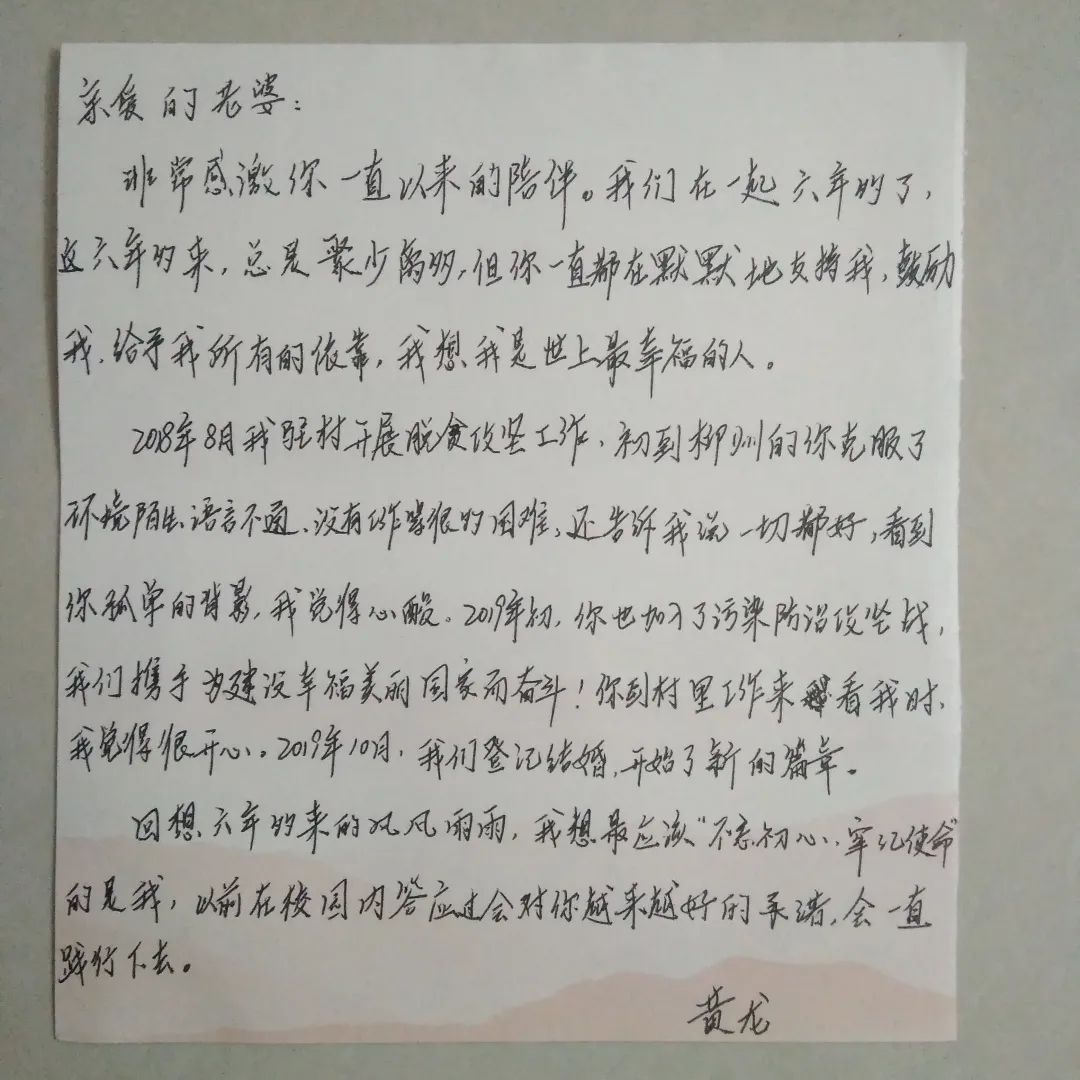 亲爱的老婆：
非常感激你一直以来的陪伴。我们在一起六年多了，
这六年多来，总是聚少离多，但你一直都在默默地支持我，鼓励
我，给予我所有的依靠，我想我是世上最幸福的人。
2018年8月我驻村开展脱贫攻坚工作，初到柳州的你克服了
环境陌生、语言不通、没有工作等很多困难，还告诉我说一切都好，看到
你孤单的背影，我觉得心酸。2019年初，你也加入了污染防治攻坚战，
我们携手为建设幸福美丽国家而奋斗！你到村里工作来看我时，
我觉得很开心。2019年10月，我们登记结婚，开始了新的篇章。
回想六年多来的风风雨雨，我想最应该“不忘初心、牢记使命”
的是我，以前在校园内答应过会对你越来越好的承诺，会一直
践行下去。
黄龙